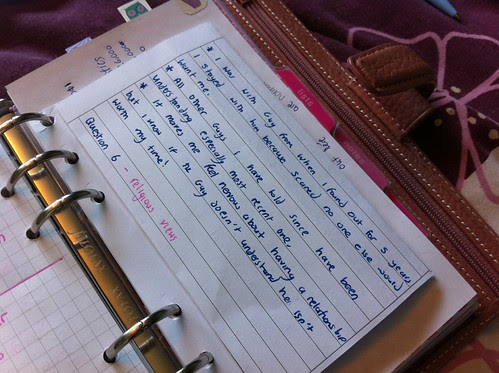 * I was with guy from when I found out for 5 years
stayed with him because scared no one else would
want me.
* All other guys I have told since have been
understanding especially most recent one.
* It makes me feel nervous about having a relationship
but I know if guy doesn't understand he isn't
worth my time!
Question 6 - religious views